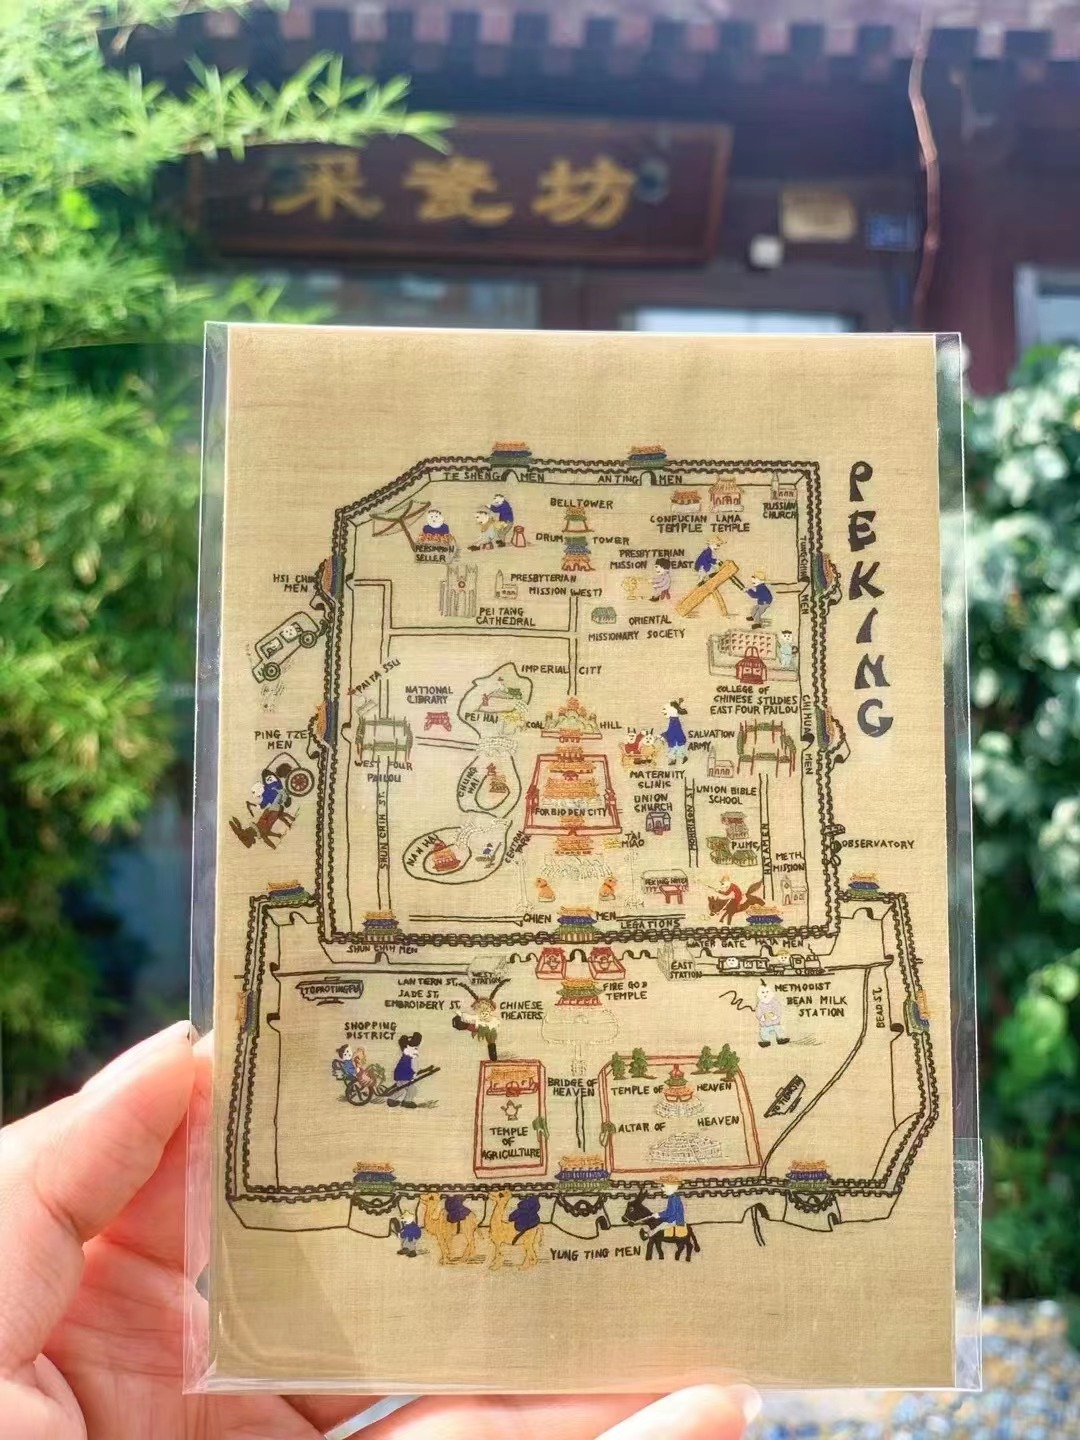 采瓷坊
PEKING
TE SHENG MEN
AN TING MEN
BELL TOWER
CONFUCIAN TEMPLE
LAMA TEMPLE
RUSSIAN CHURCH
DRUM TOWER
PERSIMMON SELLER
PRESBYTERIAN
MISSION EAST
TUNG CHIH MEN
HSI CHI
MEN
PRESBYTERIAN
MISSION WEST
PEI TANG
CATHEDRAL
ORIENTAL
MISSIONARY SOCIETY
IMPERIAL CITY
PAI TA SSU
NATIONAL
LIBRARY
PEI HAI
COLLEGE OF
CHINESE STUDIES
EAST FOUR PAILOU
CHI HUA MEN
COAL HILL
PING TZE
MEN
WEST FOUR
PAILOU
SALVATION
ARMY
CHUNG HAI
MATERNITY
CLINIC
FORBIDDEN CITY
UNION
CHURCH
UNION BIBLE
SCHOOL
SHUN CHIH ST.
MORRISON ST
HATAMEN
NAN HAI
CENTRAL PARK
TAI
MIAO
P.U.M.C.
OBSERVATORY
METH.
MISSION
PEKING HOTEL
CHIEN MEN
LEGATIONS
SHUN CHIH MEN
WATER GATE
HATA MEN
WEST
STATION
EAST
STATION
TO PAOTINGFU
LANTERN ST.
JADE ST.
EMBROIDERY ST.
CHINESE
THEATERS
FIRE GOD
TEMPLE
METHODIST
BEAN MILK
STATION
BEAD ST.
SHOPPING
DISTRICT
BRIDGE OF
HEAVEN
TEMPLE OF HEAVEN
ALTAR OF HEAVEN
TEMPLE
OF
AGRICULTURE
YUNG TING MEN